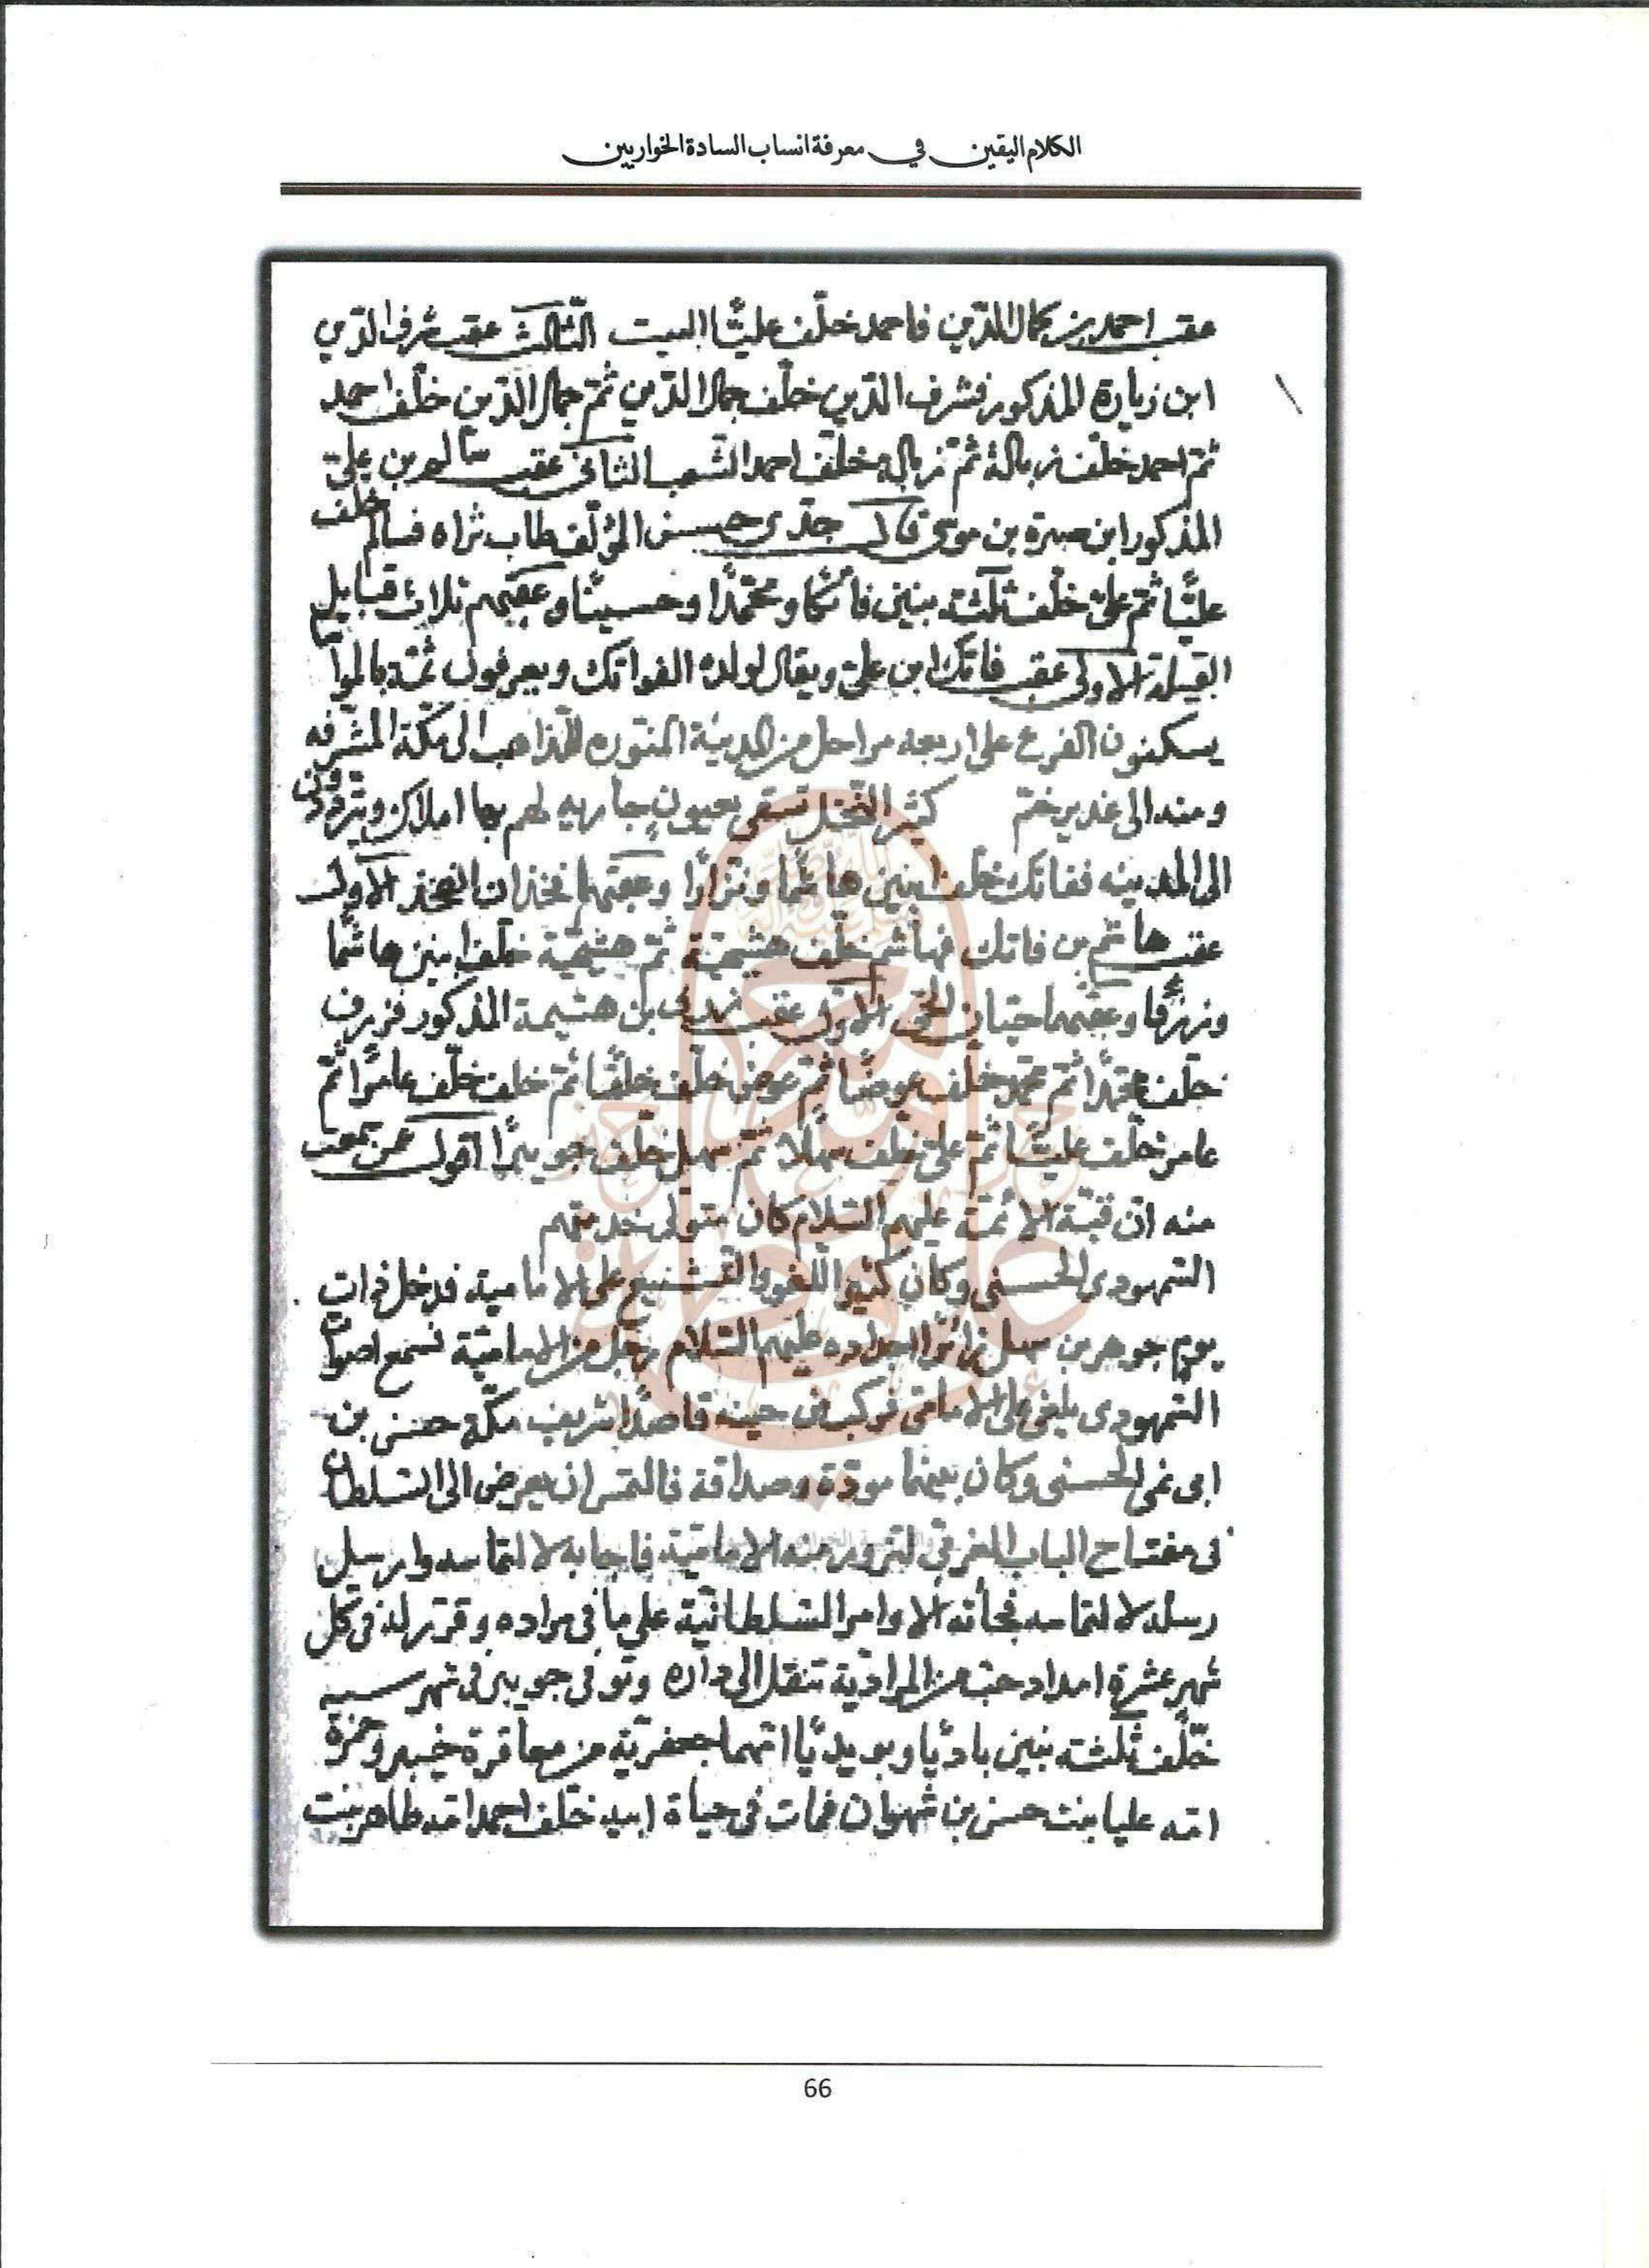 الكلام اليقين في معرفة انساب السادة الخواريين
عقب احمد بن كمال الدّين فاحمد خلّف عليًّا البيت الثّالث عقب شرف الدّين
ابن زيارة المذكور فشرف الدّين خلّف جمال الدّين ثمّ جمال الدّين خلّف احمد
ثمّ احمد خلّف زبالة ثمّ زبالة خلّف احمد الشّعب الثانى عقب سالم بن علىّ
المذكور ابن صبرة بن موسى قال جدّى حسين المؤلّف طاب ثراه فسالم خلّف
عليًّا ثمّ علىّ خلّف ثلثة بنين فاتكا ومحمّدًا وحسينًا وعقبهم ثلاث قبايل
القبيلة الاولى عقب فاتك ابن علىّ ويقال لولده الفواتك ويعرفون ثمّة بالموا
يسكنون الفرع على اربعه مراحل من المدينة المنوره للذاهب الى مكّة المشرّفه
ومنه الى غدير خمّ كثير النّخل تسقى بعيون جاريه لهم بها املاك ويتردّدون
الى المدينه ففاتك خلّف ابنين هاشمًا ونزارًا وعقبهما فخذان الفخذ الاول
عقب هاشم بن فاتك فهاشم خلّف هشيمة ثمّ هشيمة خلّف ابنين هاشما
وزيرفا وعقبهما حيّان الحىّ الاول عقب زيرف بن هشيمة المذكور فزيرف
خلّف محمّدًا ثمّ محمّد خلّف عوضًا ثمّ عوض خلّف خلفًا ثمّ خلف خلّف عامرًا ثمّ
عامر خلّف عليًّا ثمّ علىّ خلّف سهلًا ثمّ سهل خلّف جويبرًا اقول عن سمعت
منه انّ قبّة الائمّة عليهم السّلام كان متولى خدمتهم
السّمهودى الحسنى وكان كثير اللغو والتّشنيع على الاماميه فدخل ذات
يوم جوهر بن سهل زائرًا اجداده عليهم السّلام رجل من الاماميّة فسمع اصوات
السّمهودى يلغى على الامامى فركب فى حينه قاصدًا شريف مكّة حسن بن
ابى نمى الحسنى وكان بينهما مودّة وصداقة فالتمس ان يعرض الى السّلطان
فى مفتاح الباب الغربى لتزور منه الاماميّة فاجابه لالتماسه وارسل
رسله لالتماسه فجأته الاوامر السّلطانيّة على ما فى مراده وقرّر له فى كل
شهر عشرة امداد حبّ من المراديّة تنقل الى داره وتوفى جويبر فى شهر سـ
خلّف ثلثة بنين باديًا وبويديًا امّهما جعفريّة من معاقرة خيبر وحمزة
امّه عليا بنت حسن بن شهوان فمات فى حياة ابيه خلّف احمد امّه طاهر بنت
66